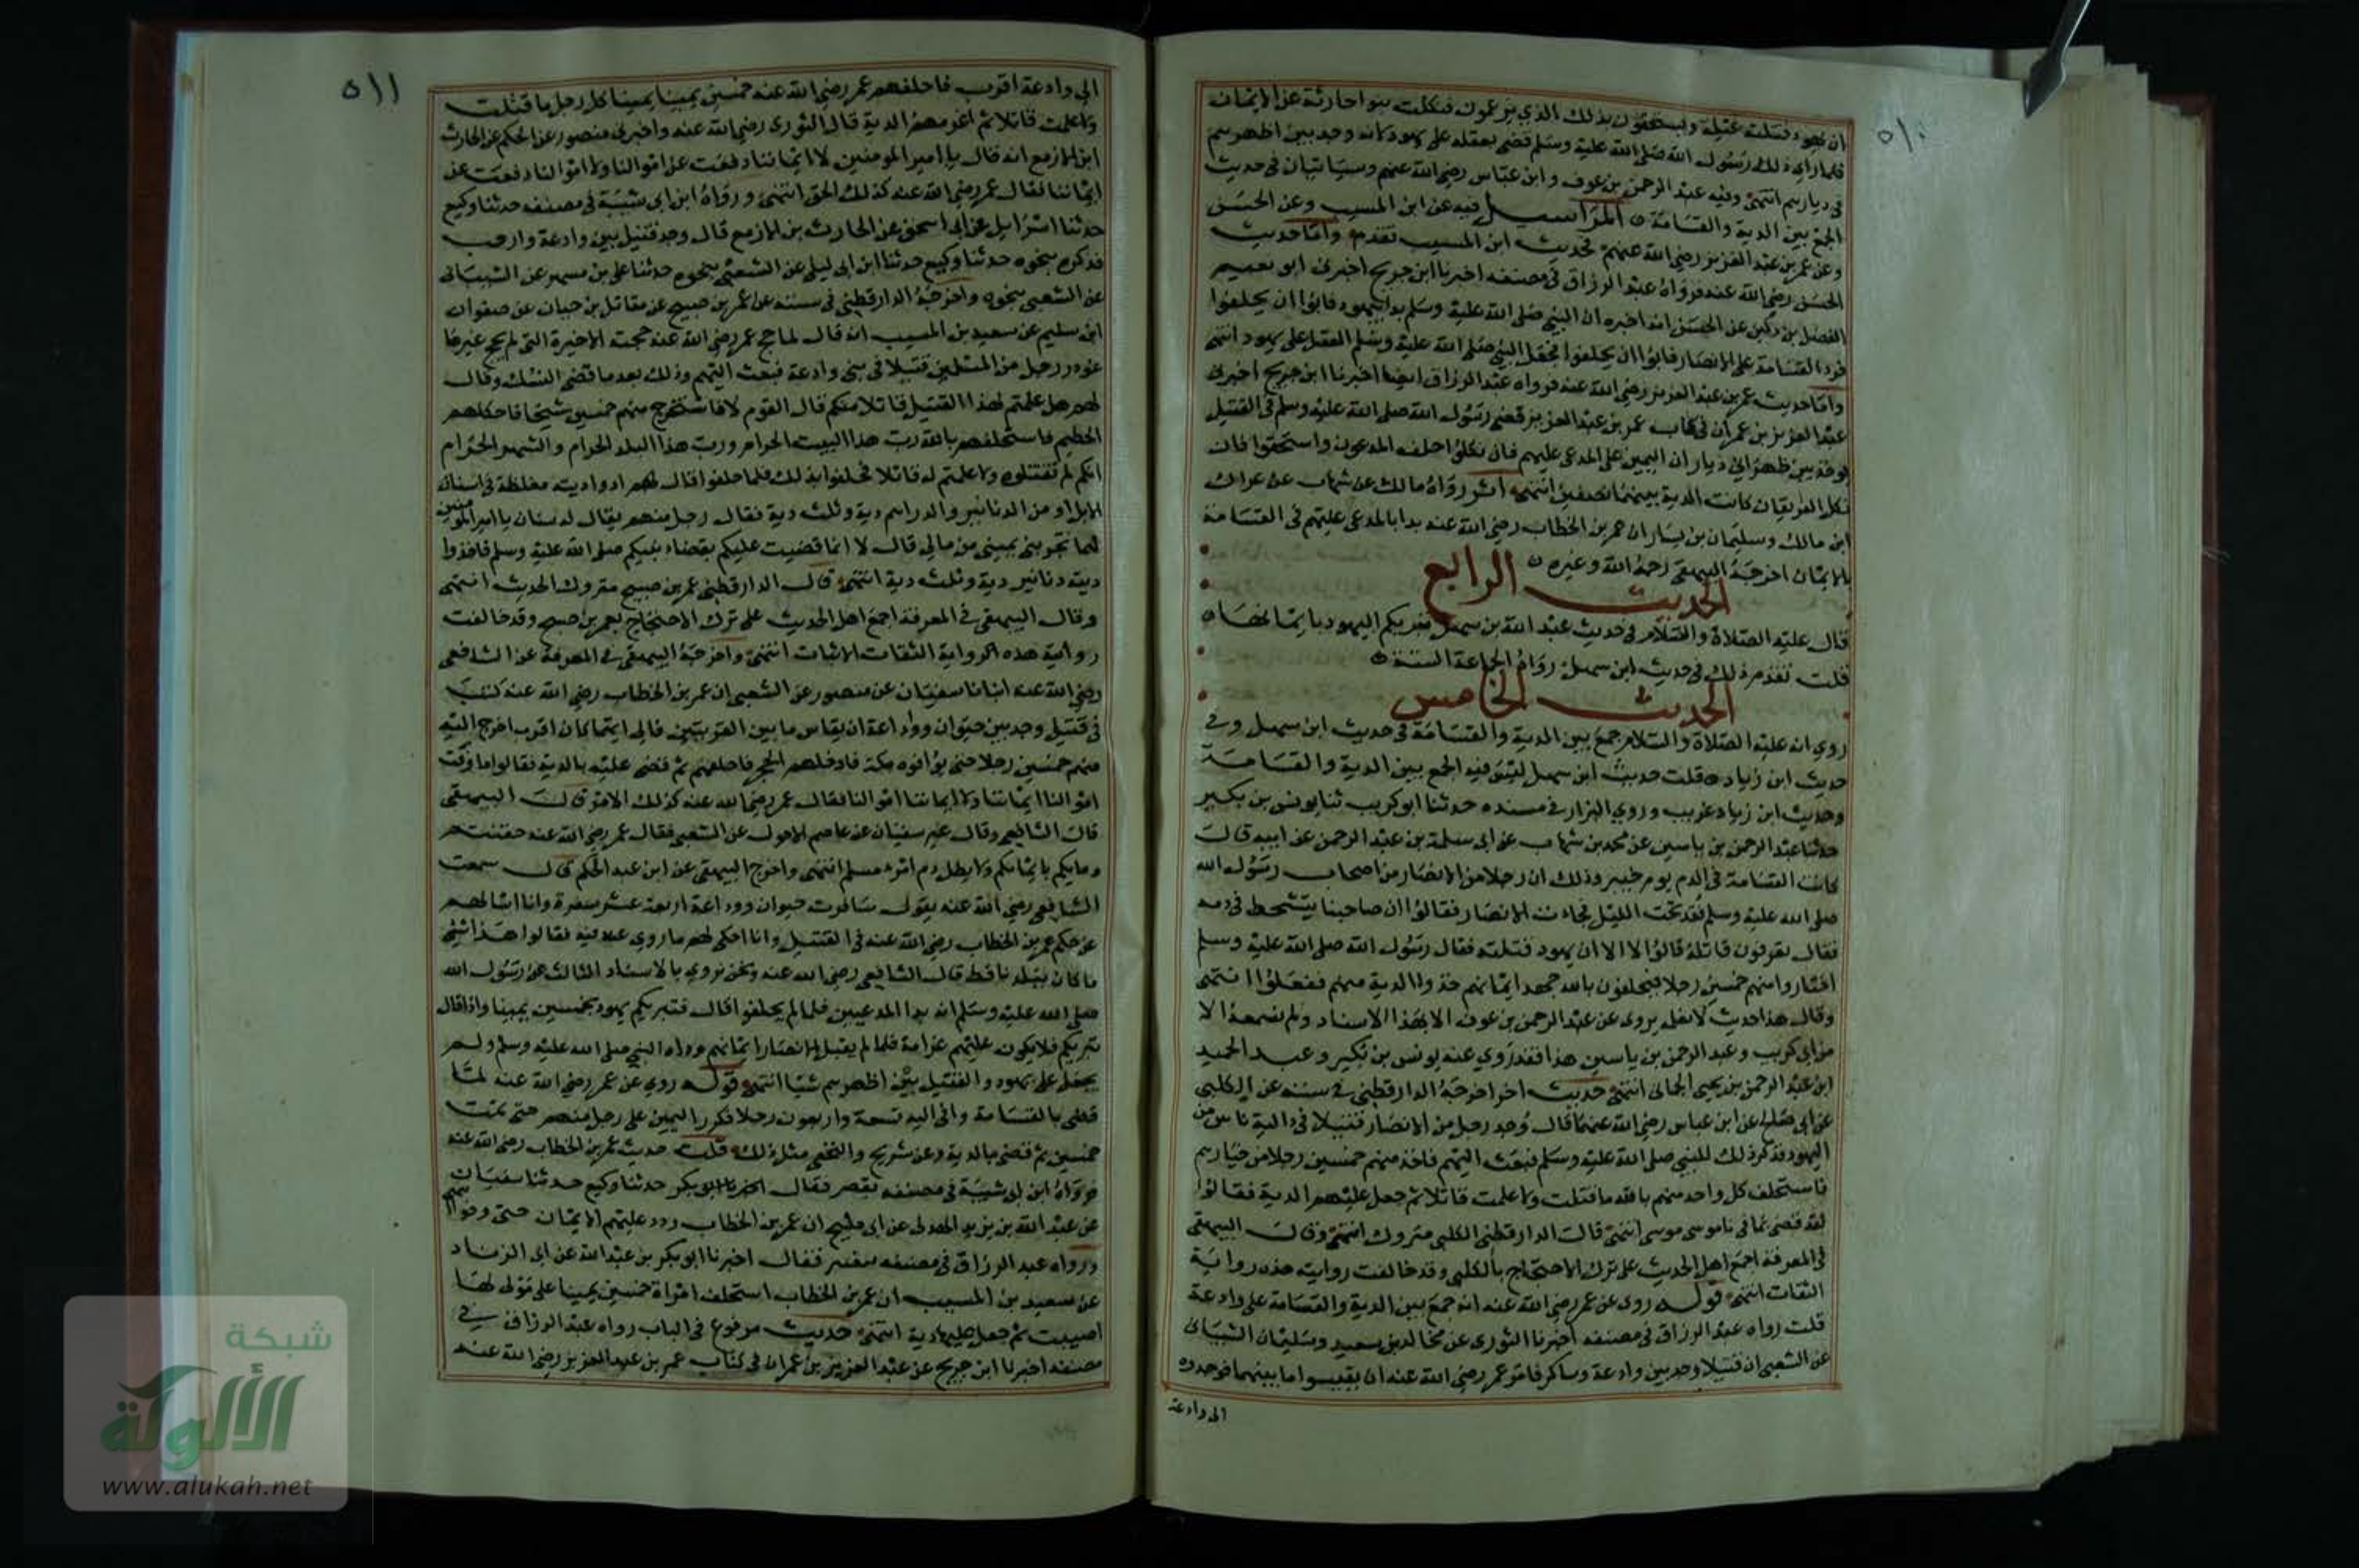 ٥١٠
ان يهود قتلت غيلة ويستحقون بذلك الذي يزعمون فنكلت بنو حارثة عن الايمان
فلما راي ذلك رسول الله صلى الله عليه وسلم قضى بعقله على يهود لانه وجد بين اظهرهم
في ديارهم انتهى وفيه عبد الرحمن بن عوف وابن عباس رضي الله عنهم وسياتيان في حديث
الجمع بين الدية والقسامة المراسيل فيه عن ابن المسيب وعن الحسن
وعن عمر بن عبد العزيز رضي الله عنهم فحديث ابن المسيب تقدم واما حديث
الحسن رضي الله عنه فرواه عبد الرزاق في مصنفه اخبرنا ابن جريج اخبرني ابو نعيم
الفضل بن دكين عن الحسن انه اخبره ان النبي صلى الله عليه وسلم بدا بيهود فابوا ان يحلفوا
فرد القسامة على الانصار فابوا ان يحلفوا فجعل النبي صلى الله عليه وسلم العقل على يهود انتهى
واما حديث عمر بن عبد العزيز رضي الله عنه فرواه عبد الرزاق ايضا اخبرنا ابن جريج اخبرني
عبد العزيز بن عمران في كتاب عمر بن عبد العزيز قضى رسول الله صلى الله عليه وسلم في القتيل
يوجد بين ظهراني ديار ان اليمين على المدعى عليهم فان نكلوا حلف المدعون واستحقوا فان
نكل الفريقان كانت الدية بينهما نصفين انتهى اثر رواه مالك عن شهاب عن عراك
ابن مالك وسليمان بن يسار ان عمر بن الخطاب رضي الله عنه بدا بالمدعى عليهم في القسامة
بالايمان اخرجه البيهقي رحمه الله وغيره
الحديث الرابع
قال عليه الصلاة والسلام في حديث عبد الله بن سهل تبريكم اليهود بايمانها
قلت تقدم ذلك في حديث ابن سهل رواه الجماعة الستة
الحديث الخامس
روي انه عليه الصلاة والسلام جمع بين الدية والقسامة في حديث ابن سهل وفي
حديث ابن زياد قلت حديث ابن سهل ليس فيه الجمع بين الدية والقسامة
وحديث ابن زياد غريب وروي البزار في مسنده حدثنا ابو كريب ثنا يونس بن بكير
حدثنا عبد الرحمن بن ياسين عن محمد بن شهاب عن ابي سلمة بن عبد الرحمن عن ابيه قال
كانت القسامة في الدم يوم خيبر وذلك ان رجلا من الانصار من اصحاب رسول الله
صلى الله عليه وسلم فقد تحت الليل فجاءت الانصار فقالوا ان صاحبنا يتشحط في دمه
فقال تعرفون قاتله قالوا لا الا ان يهود قتلته فقال رسول الله صلى الله عليه وسلم
اختاروا منهم خمسين رجلا فيحلفون بالله جهد ايمانهم خذوا الدية منهم ففعلوا انتهى
وقال هذا حديث لا نعلمه يروى عن عبد الرحمن بن عوف الا بهذا الاسناد ولم نسمعه الا
من ابي كريب وعبد الرحمن بن ياسين هذا فقد روي عنه يونس بن بكير وعبد الحميد
ابن عبد الرحمن بن يحيى الحماني انتهى حديث اخر اخرجه الدارقطني في سننه عن الكلبي
عن ابي صالح عن ابن عباس رضي الله عنهما قال وجد رجل من الانصار قتيلا في دالية ناس من
اليهود فذكر ذلك للنبي صلى الله عليه وسلم فبعث اليهم فاخذ منهم خمسين رجلا من خيارهم
فاستحلف كل واحد منهم بالله ما قتلت ولا علمت قاتلا ثم جعل عليهم الدية فقالوا
لقد قضى بما في ناموس موسى انتهى قال الدارقطني الكلبي متروك انتهى وقال البيهقي
في المعرفة اجمع اهل الحديث على ترك الاحتجاج بالكلبي وقد خالفت روايته هذه رواية
الثقات انتهى قوله روي عن عمر رضي الله عنه انه جمع بين الدية والقسامة على وادعة
قلت رواه عبد الرزاق في مصنفه اخبرنا الثوري عن مجالد بن سعيد وسليمان الشيباني
عن الشعبي ان قتيلا وجد بين وادعة وشاكر فامر عمر رضي الله عنه ان يقيسوا ما بينهما فوجدوه
الى وادعة
٥١١
الي وادعة اقرب فاحلفهم عمر رضي الله عنه خمسين يمينا يمينا كل رجل ما قتلت
ولا علمت قاتلا ثم اغرمهم الدية قال الثوري رضي الله عنه واخبرني منصور عن الحكم عن الحارث
ابن الازمع انه قال يا امير المومنين لا ايماننا دفعت عن اموالنا ولا اموالنا دفعت عن
ايماننا فقال عمر رضي الله عنه كذلك الحق انتهى ورواه ابن ابي شيبة في مصنفه حدثنا وكيع
حدثنا اسرايل عن ابي اسحق عن الحارث بن الازمع قال وجد قتيل بين وادعة وارحب
فذكره بنحوه حدثنا وكيع حدثنا ابن ابي ليلى عن الشعبي بنحوه حدثنا علي بن مسهر عن الشيباني
عن الشعبي بنحوه واخرجه الدارقطني في سننه عن عمر بن صبيح عن مقاتل بن حيان عن صفوان
ابن سليم عن سعيد بن المسيب انه قال لما حج عمر رضي الله عنه حجته الاخيرة التي لم يحج غيرها
غودر رجل من المسلمين قتيلا في بني وادعة فبعث اليهم وذلك بعد ما قضى النسك وقال
لهم هل علمتم لهذا القتيل قاتلا منكم قال القوم لا فاستخرج منهم خمسين شيخا فادخلهم
الحطيم فاستحلفهم بالله رب هذا البيت الحرام ورب هذا البلد الحرام والشهر الحرام
انكم لم تقتلوه ولا علمتم له قاتلا فحلفوا بذلك فلما حلفوا قال لهم ادوا دية مغلظة في اسنان
الابل او من الدنانير والدراهم دية وثلث دية فقال رجل منهم يقال له سنان يا امير المومنين
اما تجزيني يميني من مالي قال لا انما قضيت عليكم بقضاء نبيكم صلى الله عليه وسلم فاخذوا
ديته دنانير دية وثلث دية انتهى قال الدارقطني عمر بن صبيح متروك الحديث انتهى
وقال البيهقي في المعرفة اجمع اهل الحديث على ترك الاحتجاج بعمر بن صبح وقد خالفت
روايته هذه الرواية الثقات الاثبات انتهى واخرجه البيهقي في المعرفة عن الشافعي
رضي الله عنه انبانا سفيان عن منصور عن الشعبي ان عمر بن الخطاب رضي الله عنه كتب
في قتيل وجد بين خيوان ووداعة ان يقاس ما بين القريتين فالى ايتهما كان اقرب اخرج اليه
منهم خمسين رجلا حتى يوافوه مكة فادخلهم الحجر فاحلفهم ثم قضى عليهم بالدية فقالوا ما وقت
اموالنا ايماننا ولا ايماننا اموالنا فقال عمر رضي الله عنه كذلك الامر قال البيهقي
قال الشافعي وقال غير سفيان عن عاصم الاحول عن الشعبي فقال عمر رضي الله عنه حقنتم
دماءكم بايمانكم ولا يطل دم امرء مسلم انتهى واخرج البيهقي عن ابن عبد الحكم قال سمعت
الشافعي رضي الله عنه يقول سافرت خيوان ووداعة اربعة عشر سفرة وانا اسالهم
عن حكم عمر بن الخطاب رضي الله عنه في القتيل وانا احكي لهم ما روي عنه فيه فقالوا هذا شي
ما كان ببلدنا قط قال الشافعي رضي الله عنه ونحن نروي بالاسناد الثالث عن رسول الله
صلى الله عليه وسلم انه بدا المدعيين فلما لم يحلفوا قال فتبريكم يهود بخمسين يمينا واذا قال
تبريكم فلا يكون عليهم غرامة فلما لم يقبل الانصار ايمانهم وداه النبي صلى الله عليه وسلم ولم
يجعل على يهود والقتيل بين اظهرهم شيا انتهى قوله روي عن عمر رضي الله عنه لما
قضى بالقسامة وافى اليه تسعة واربعون رجلا فكرر اليمين على رجل منهم حتى تمت
خمسين ثم قضى بالدية وعن شريح والنخعي مثل ذلك قلت حديث عمر بن الخطاب رضي الله عنه
فرواه ابن ابي شيبة في مصنفه فقال حدثنا وكيع حدثنا سفيان
عن عبد الله بن يزيد الهذلي عن ابي مليح ان عمر بن الخطاب ردد عليهم الايمان حتى وفوا
ورواه عبد الرزاق في مصنفه فقال اخبرنا ابو بكر بن عبد الله عن ابي الزناد
عن سعيد بن المسيب ان عمر بن الخطاب استحلف امراة خمسين يمينا على مولى لها
اصيب ثم جعل عليها دية انتهى حديث مرفوع في الباب رواه عبد الرزاق في
مصنفه اخبرنا ابن جريج عن عبد العزيز بن عمران في كتاب عمر بن عبد العزيز رضي الله عنه
شبكة
الألوكة
www.alukah.net